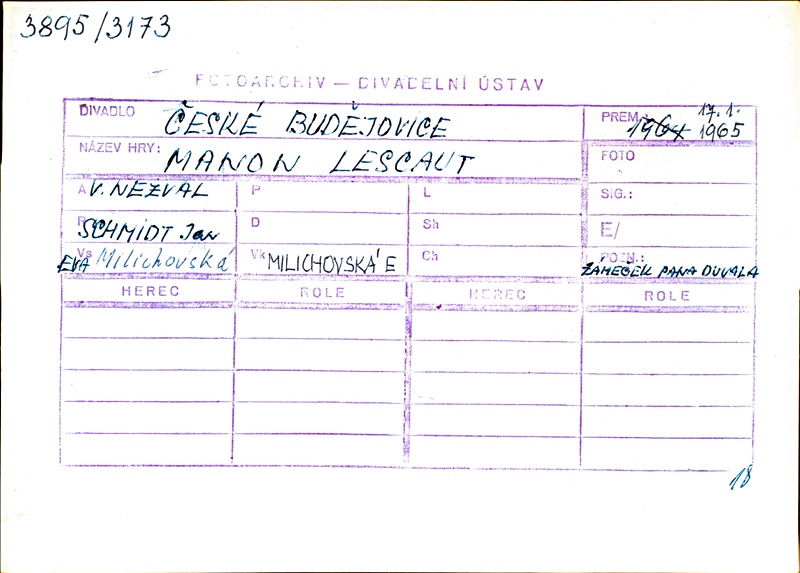 3895/3173
FOTOARCHIV — DIVADELNÍ ÚSTAV
DIVADLO ČESKÉ BUDĚJOVICE
PREM. 1964 17.1. 1965
NÁZEV HRY: MANON LESCAUT
FOTO
A V. NEZVAL P L SIG.:
R SCHMIDT Jan D Sh E/
Vs EVA Milichovská Vk MILICHOVSKÁ E Ch POZN.: ZÁMEČEK PANA DUVALA
HEREC ROLE HEREC ROLE
18